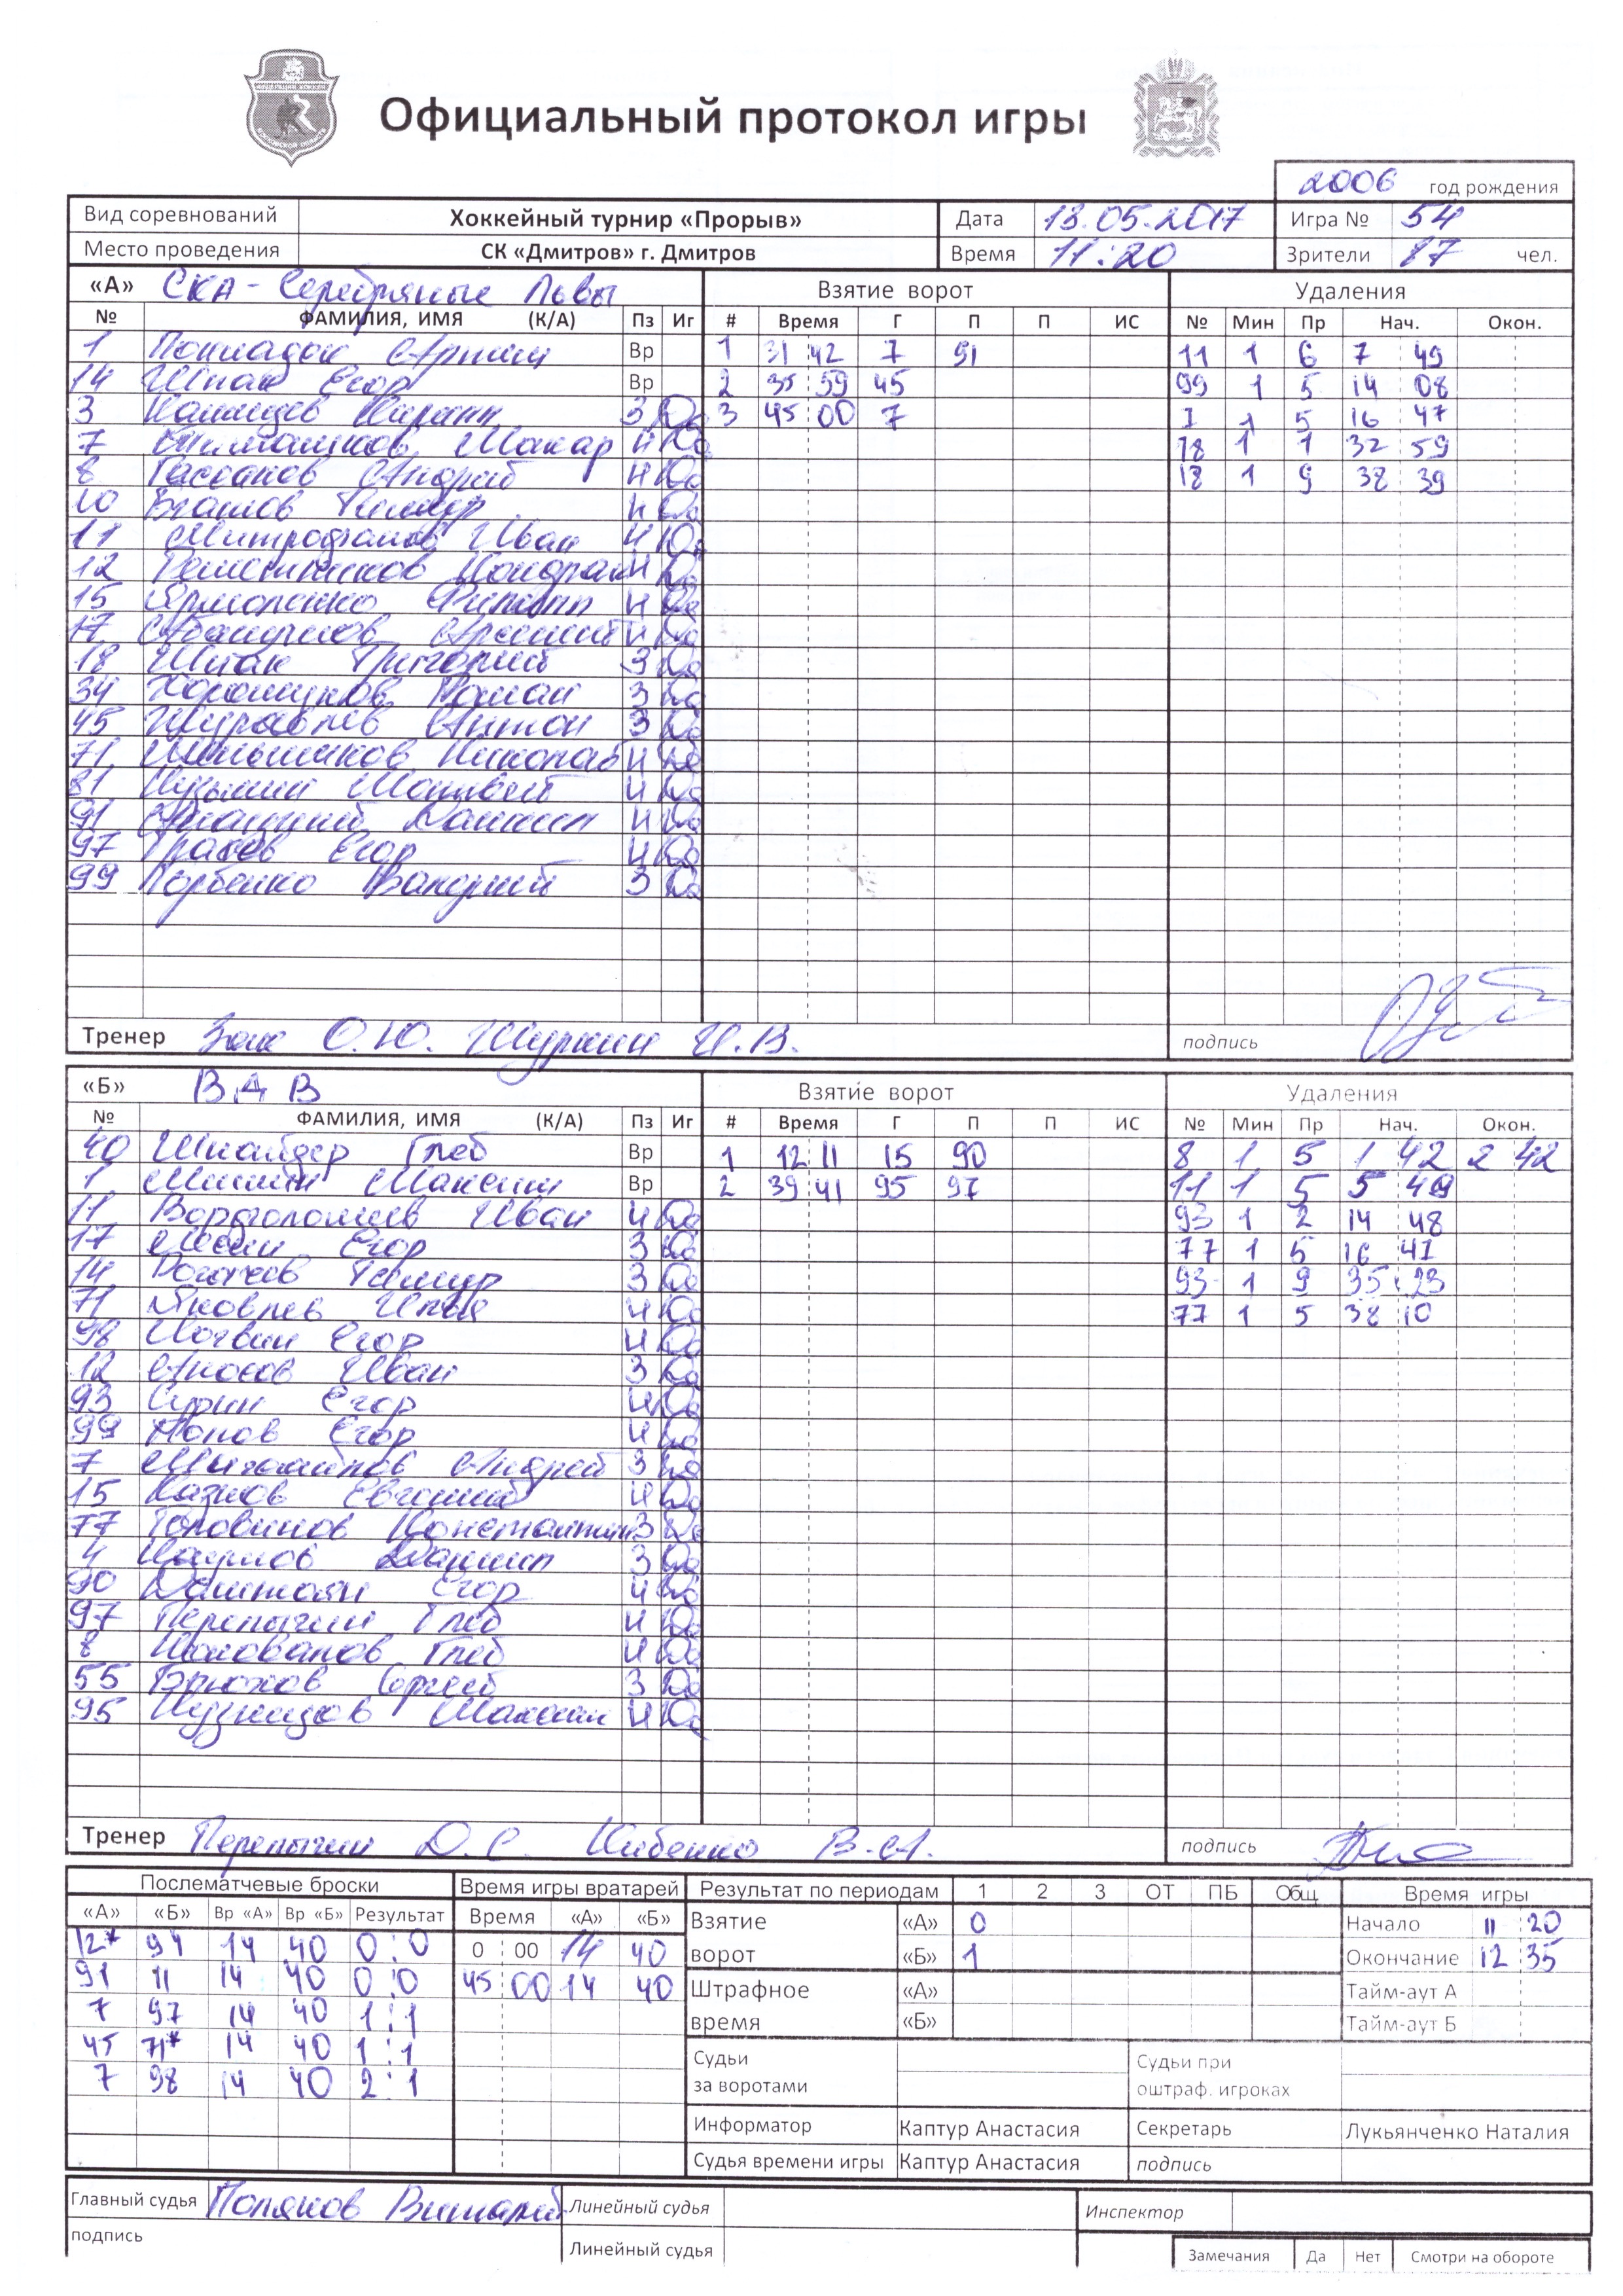 Официальный протокол игры
2006 год рождения
Вид соревнований Хоккейный турнир «Прорыв» Дата 13.05.2017 Игра № 54
Место проведения СК «Дмитров» г. Дмитров Время 11:20 Зрители 87 чел.
«А» СКА - Серебряные Львы Взятие ворот Удаления
№ ФАМИЛИЯ, ИМЯ (К/А) Пз Иг # Время Г П П ИС № Мин Пр Нач. Окон.
1 Вр 1 31 42 7 91 11 1 6 7 49
14 Шпак Егор Вр 2 35 59 45 99 1 5 14 08
3 З Да 3 45 00 7 1 5 16 47
7 Макар Н Да 18 1 1 32 59
8 Гассанов Андрей Н Да 18 1 9 38 39
10 Тимур Н Да
11 Митрофанов Иван Н Да
12 Н Да
15 Ярмоленко Филипп Н Да
17 Арсений Н Да
18 Шпак Григорий З Да
34 Роман З Да
45 Журавлев Антон З Да
71 Меньшиков Николай Н Да
81 Кузьмин Матвей Н Да
91 Даниил Н Да
97 Егор Н Да
99 Горбенко Валерий З Да
Тренер Заяц О.Ю. И.В. подпись
«Б» ВДВ Взятие ворот Удаления
№ ФАМИЛИЯ, ИМЯ (К/А) Пз Иг # Время Г П П ИС № Мин Пр Нач. Окон.
40 Шнайдер Глеб Вр 1 12 11 15 90 8 1 5 1 42 2 42
1 Максим Вр 2 39 41 95 97 11 1 5 5 49
11 Варфоломеев Иван Н Да 93 1 2 14 48
17 Егор З Да 77 1 5 16 47
14 Рогачев Тимур З Да 93 1 9 35 23
71 Яковлев Илья Н Да 77 1 5 38 10
98 Егор Н Да
12 Аносов Иван З Да
93 Сурин Егор Н Да
99 Попов Егор Н Да
7 Михайлов Андрей З Да
15 Евгений Н Да
77 Головинов Константин З Да
4 Наумов Даниил З Да
90 Егор Н Да
97 Перепычин Глеб Н Да
8 Глеб Н Да
55 Брюхов Сергей З Да
95 Кузнецов Максим Н Да
Тренер Перепычин Д.С. Кибенко В.А. подпись
Послематчевые броски Время игры вратарей Результат по периодам 1 2 3 ОТ ПБ Общ. Время игры
«А» «Б» Вр «А» Вр «Б» Результат Время «А» «Б» Взятие ворот «А» 0 Начало 11 20
12* 94 14 40 0:0 0 00 14 40 «Б» 1 Окончание 12 35
91 11 14 40 0:0 45 00 14 40 Штрафное время «А» Тайм-аут А
7 97 14 40 1:1 «Б» Тайм-аут Б
45 71* 14 40 1:1 Судьи за воротами Судьи при оштраф. игроках
7 98 14 40 2:1
Информатор Каптур Анастасия Секретарь Лукьянченко Наталия
Судья времени игры Каптур Анастасия подпись
Главный судья Поляков Виталий Линейный судья Инспектор
подпись Линейный судья Замечания Да Нет Смотри на обороте